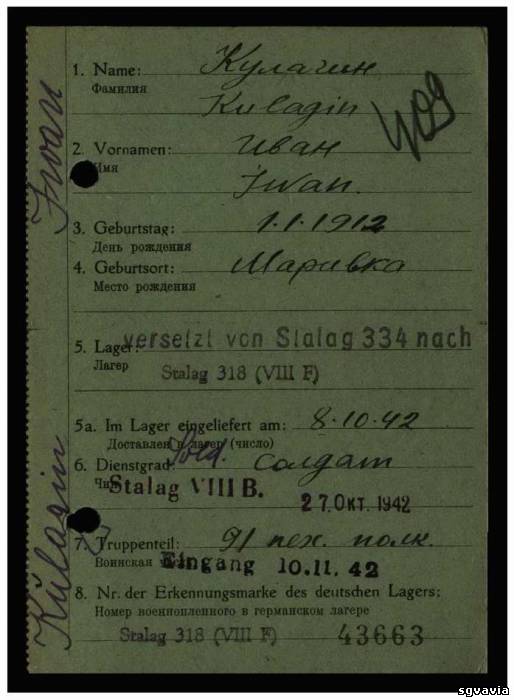 1. Name: Кулагин
Фамилия
Kulagin
409
2. Vornamen: Иван
Имя
Iwan.
3. Geburtstag: 1.1.1912
День рождения
4. Geburtsort: Маривка
Место рождения
versetzt von Stalag 334 nach
5. Lager:
Лагер
Stalag 318 (VIII F)
5a. Im Lager eingeliefert am: 8.10.42
Доставлен в лагер (число)
Sold.
6. Dienstgrad: солдат
Чин
Stalag VIII B.
27. Okt. 1942
7. Truppenteil: 91 пех. полк.
Воинская
Eingang 10.11.42
8. Nr. der Erkennungsmarke des deutschen Lagers:
Номер военнопленного в германском лагере
Stalag 318 (VIII F) 43663
Kulagin
Iwan
sgvavia